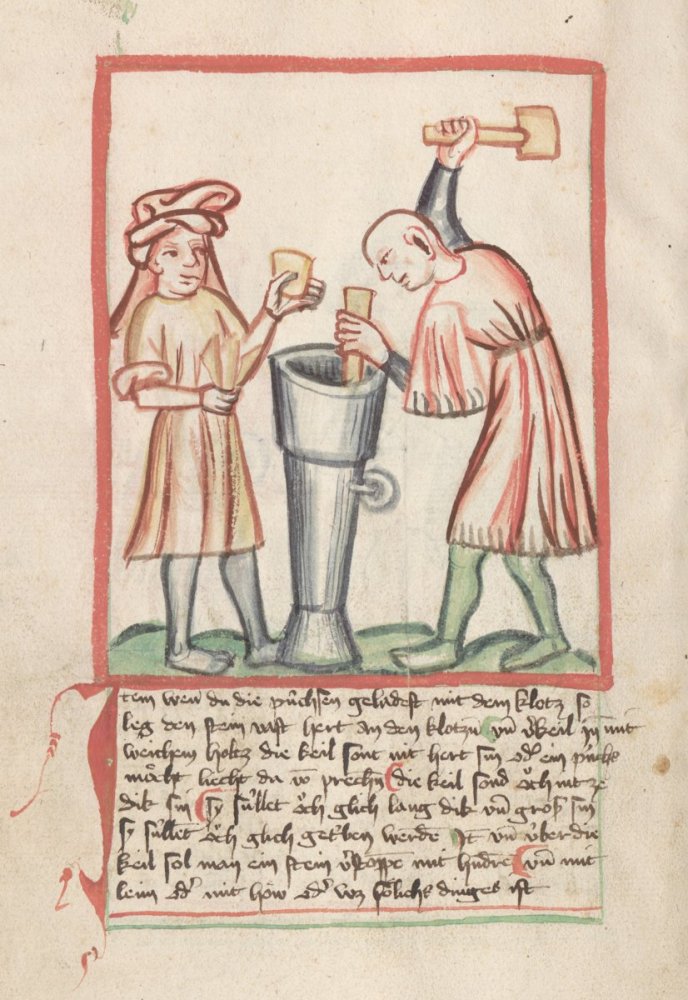 Item wen̄ du die púchsen geladest mit dem klotz so
leg den stein vast hert an den klotzn̄ vn̄ v͛keil in mit
weichem holtz die keil sont nit hert sin od͛ ein púchs
möcht liecht da vō prechn̄ die keil sond och nit ze
dik sin sy súllet och glich lang dik vn̄ groß sin
sy súllet och glich getben werdē It vn̄ úber die
keil sol man ein stein v͛stoppē mit hudrē vn̄ mit
leim od͛ mit höw od͛ wz sölichs dinges ist